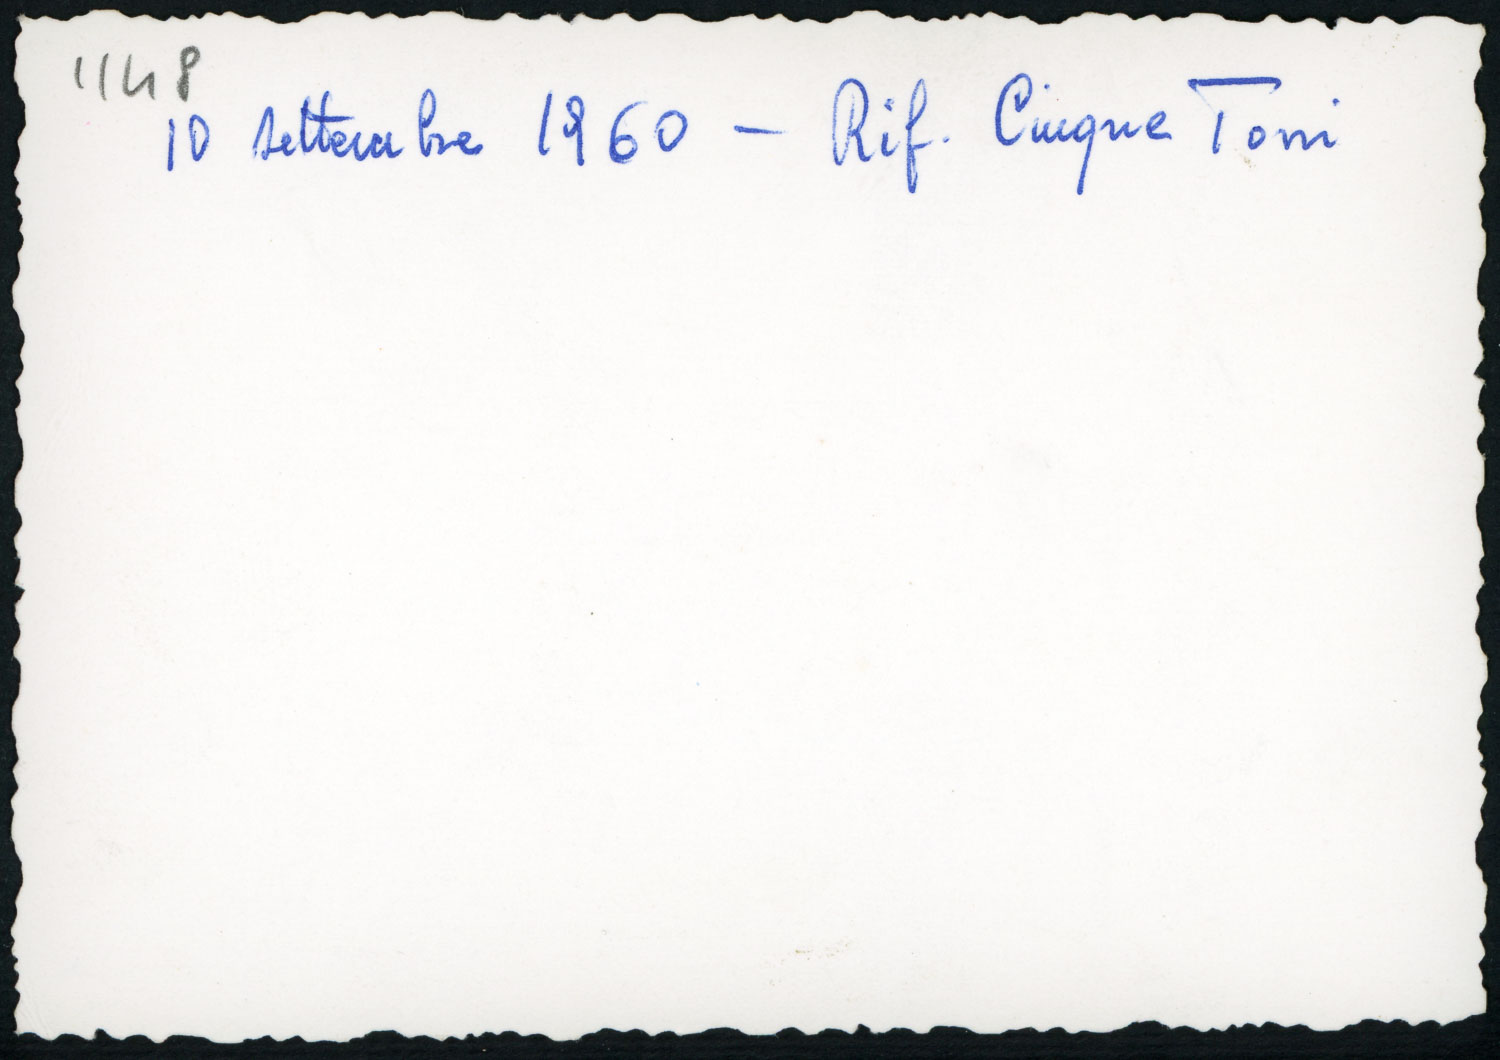 1148
10 settembre 1960 - Rif. Cinque Torri